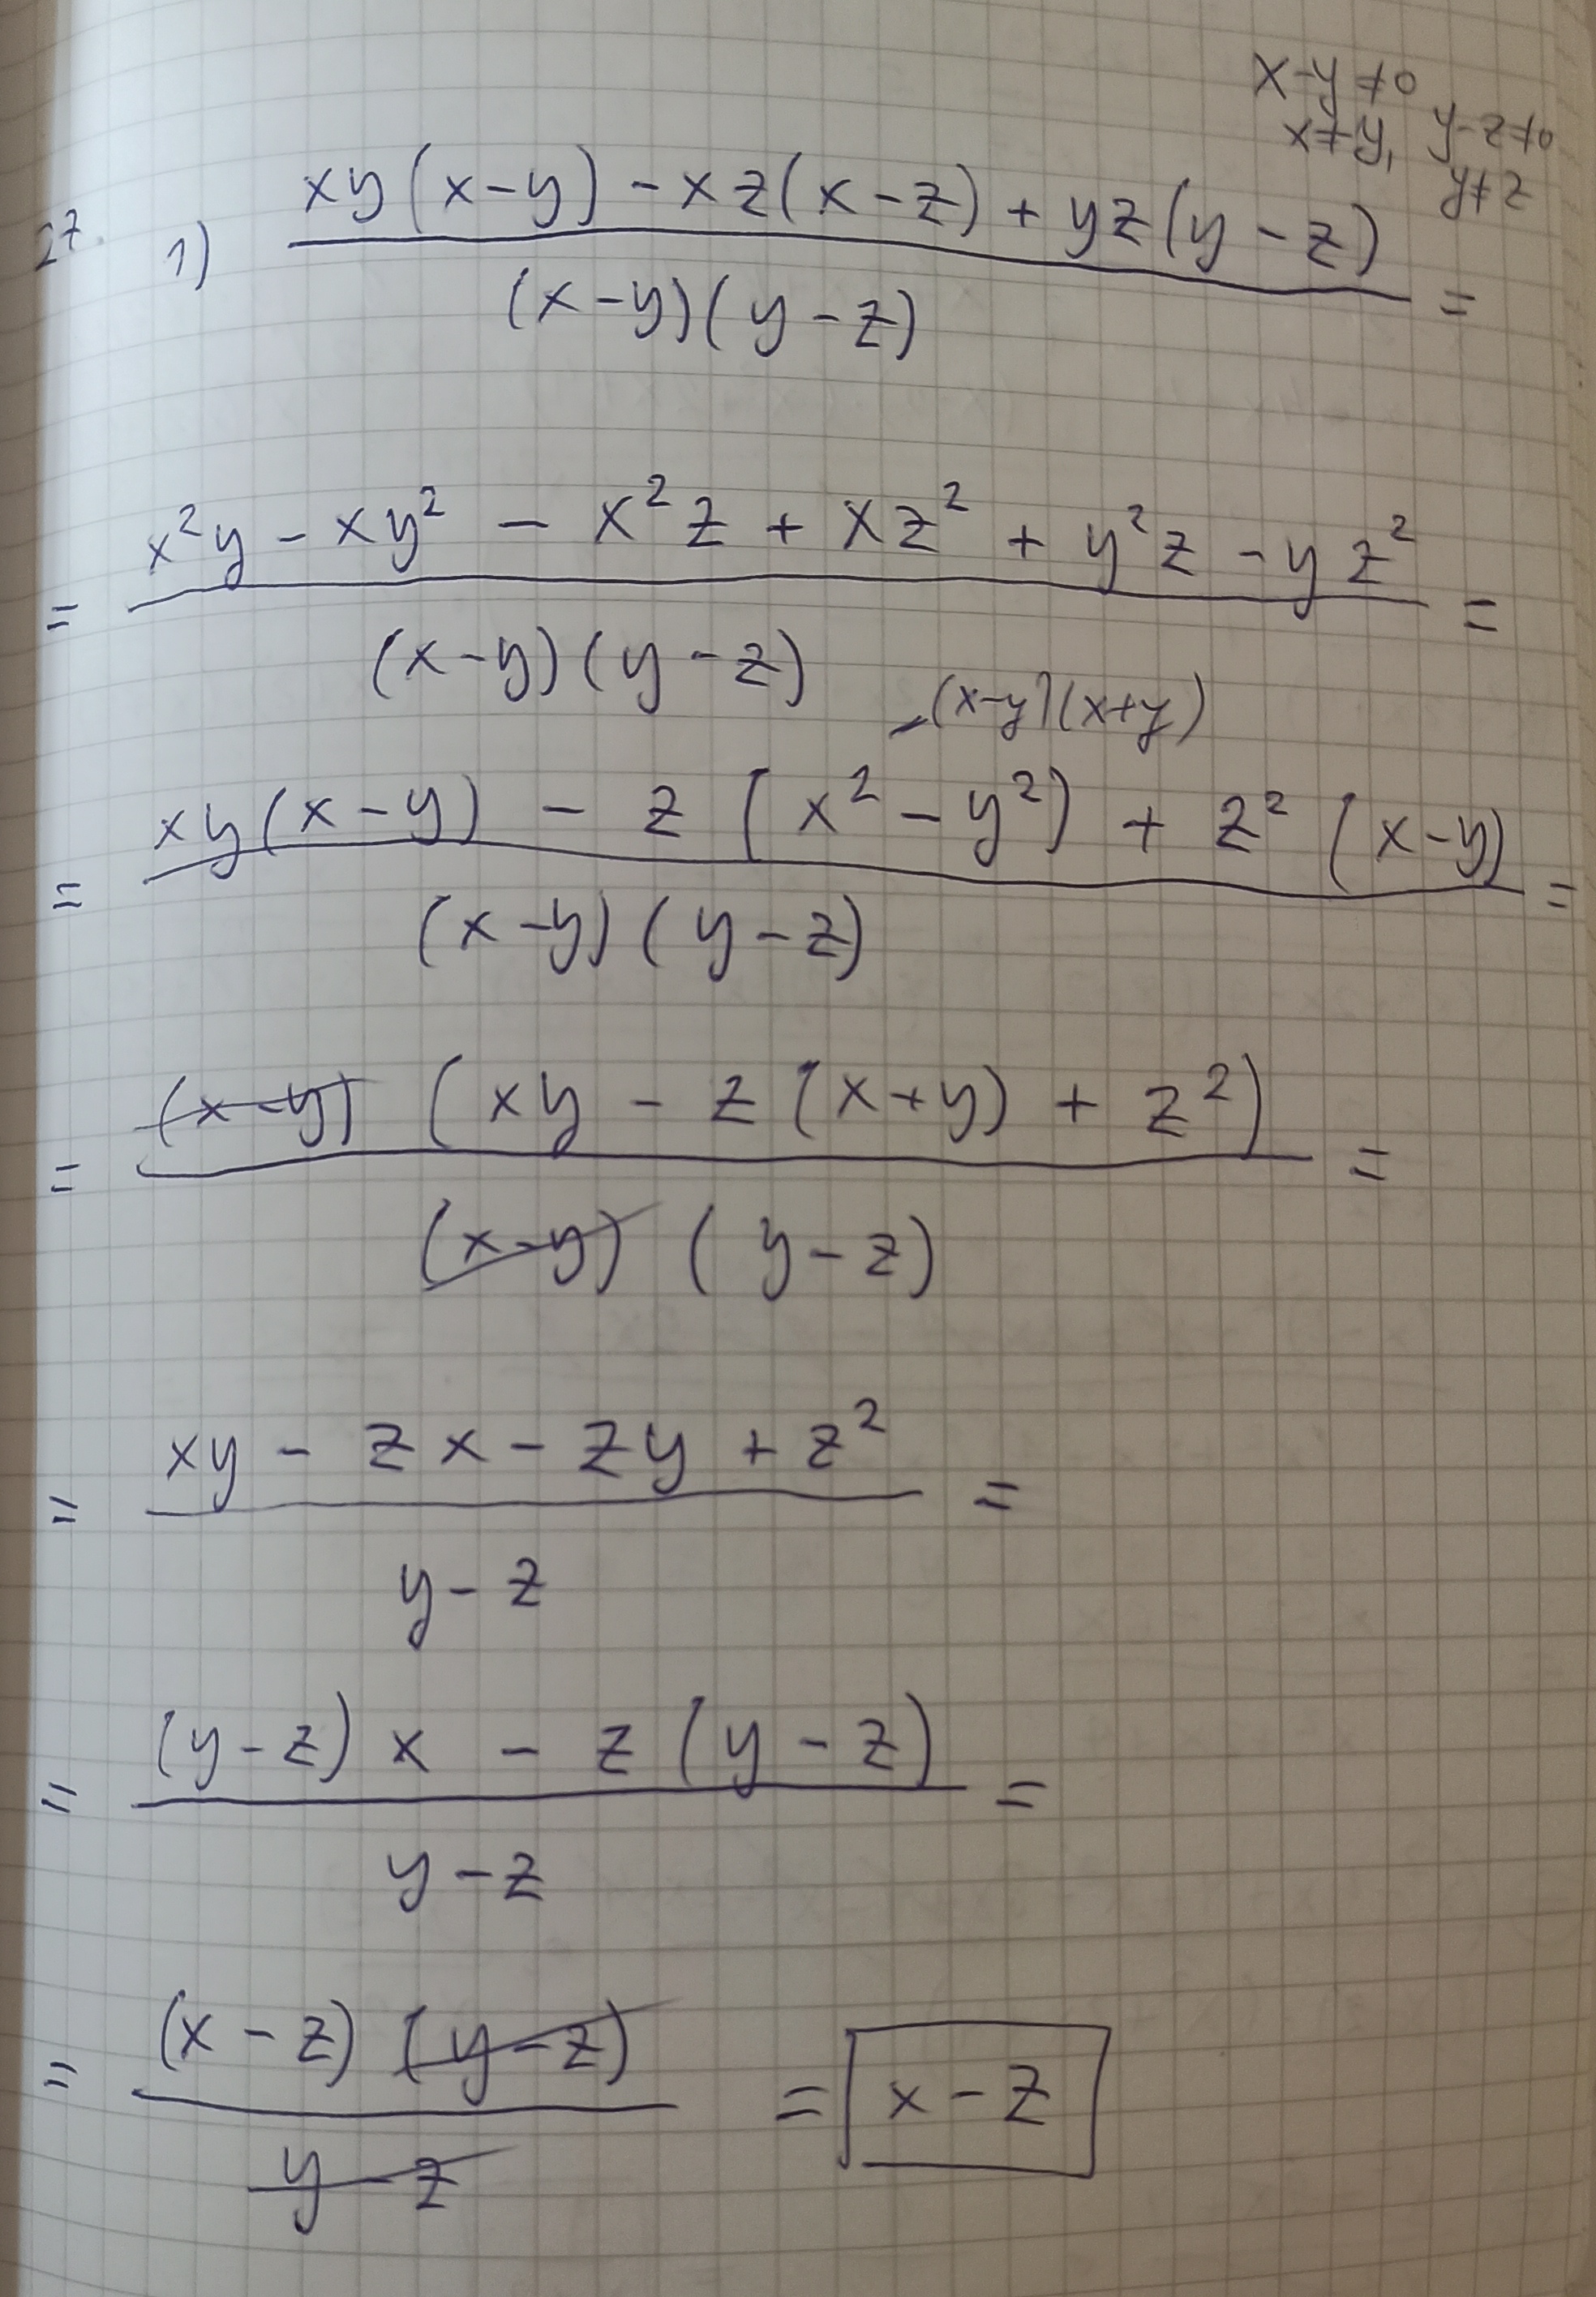 x-y≠0
x≠y, y-z≠0
y≠z
27. 1) xy(x-y) - xz(x-z) + yz(y-z)
(x-y)(y-z) =
= x²y - xy² - x²z + xz² + y²z - yz² =
(x-y)(y-z)
(x-y)(x+y)
= xy(x-y) - z(x²-y²) + z²(x-y) =
(x-y)(y-z)
= (x-y)(xy - z(x+y) + z²) =
(x-y)(y-z)
= xy - zx - zy + z² =
y-z
= (y-z)x - z(y-z) =
y-z
= (x-z)(y-z) = x-z
y-z